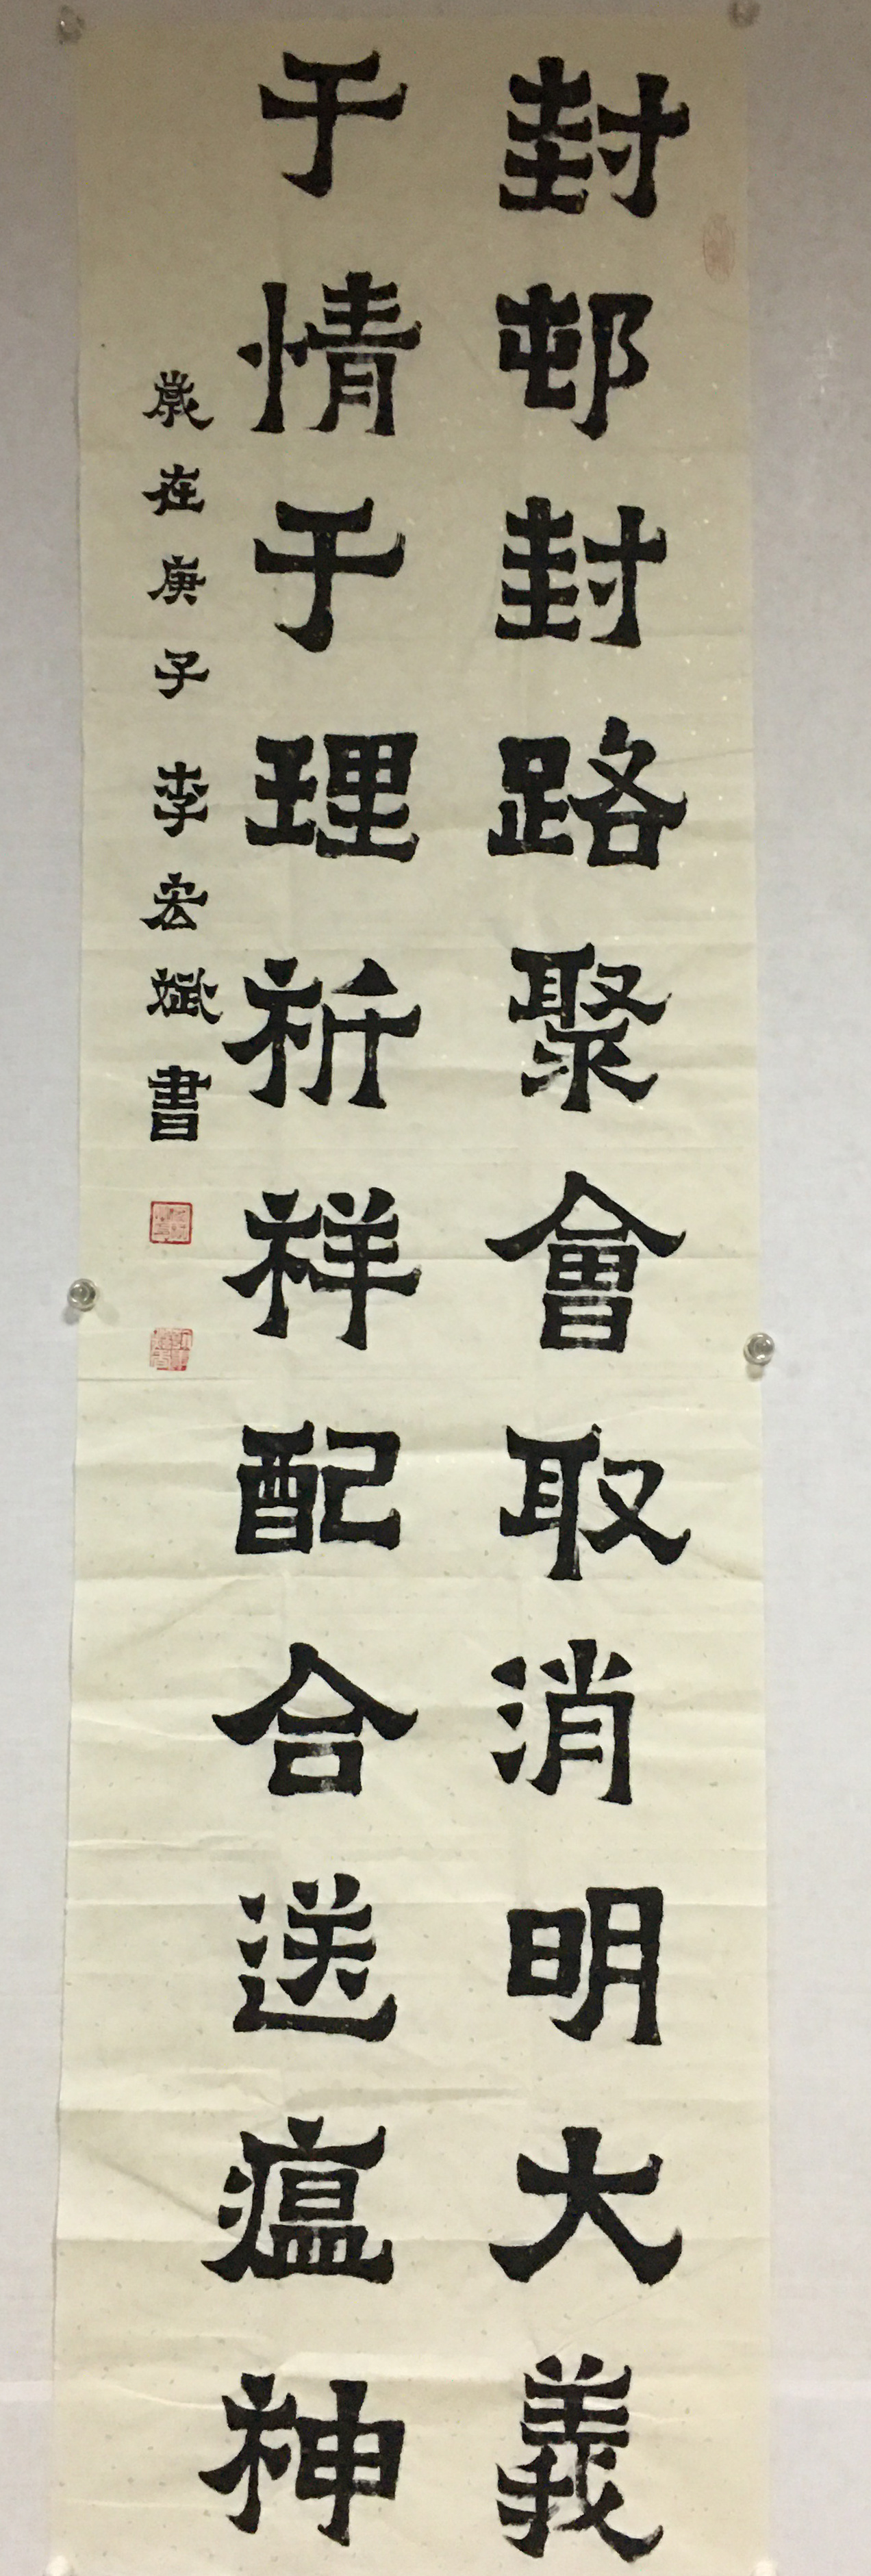 封邨封路聚會取消明大義
于情于理祈祥配合送瘟神
歲在庚子李宏斌書